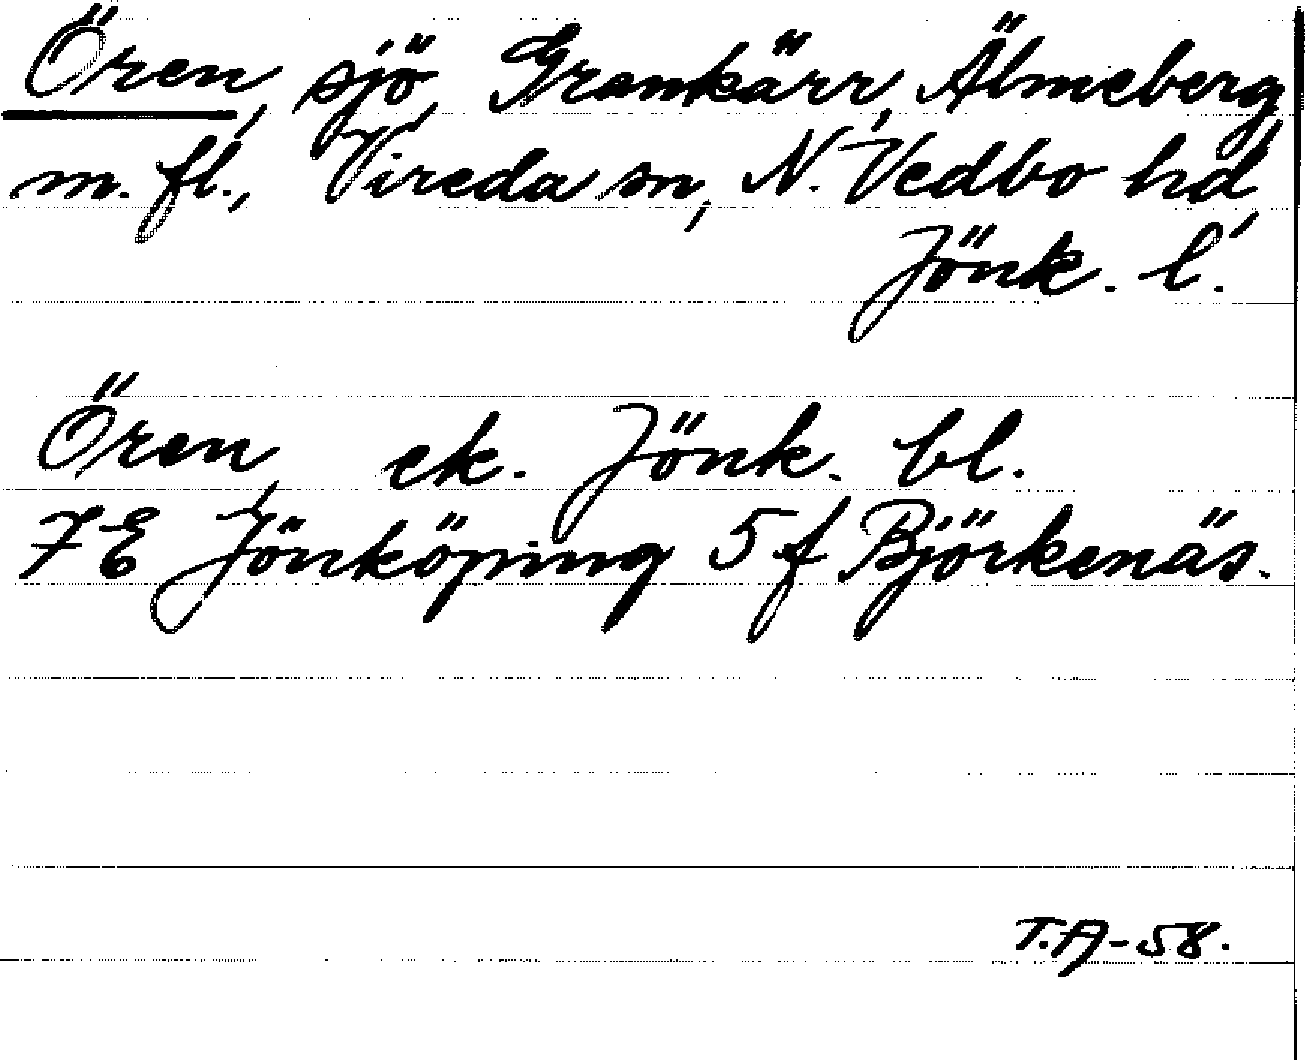 Ören, sjö, Grankärr, Älmeberg
m. fl., Vireda sn, N. Vedbo hd,
Jönk. l.
Ören, ek. Jönk. bl.
7E Jönköping 5f Björkenäs.
T.A-58.